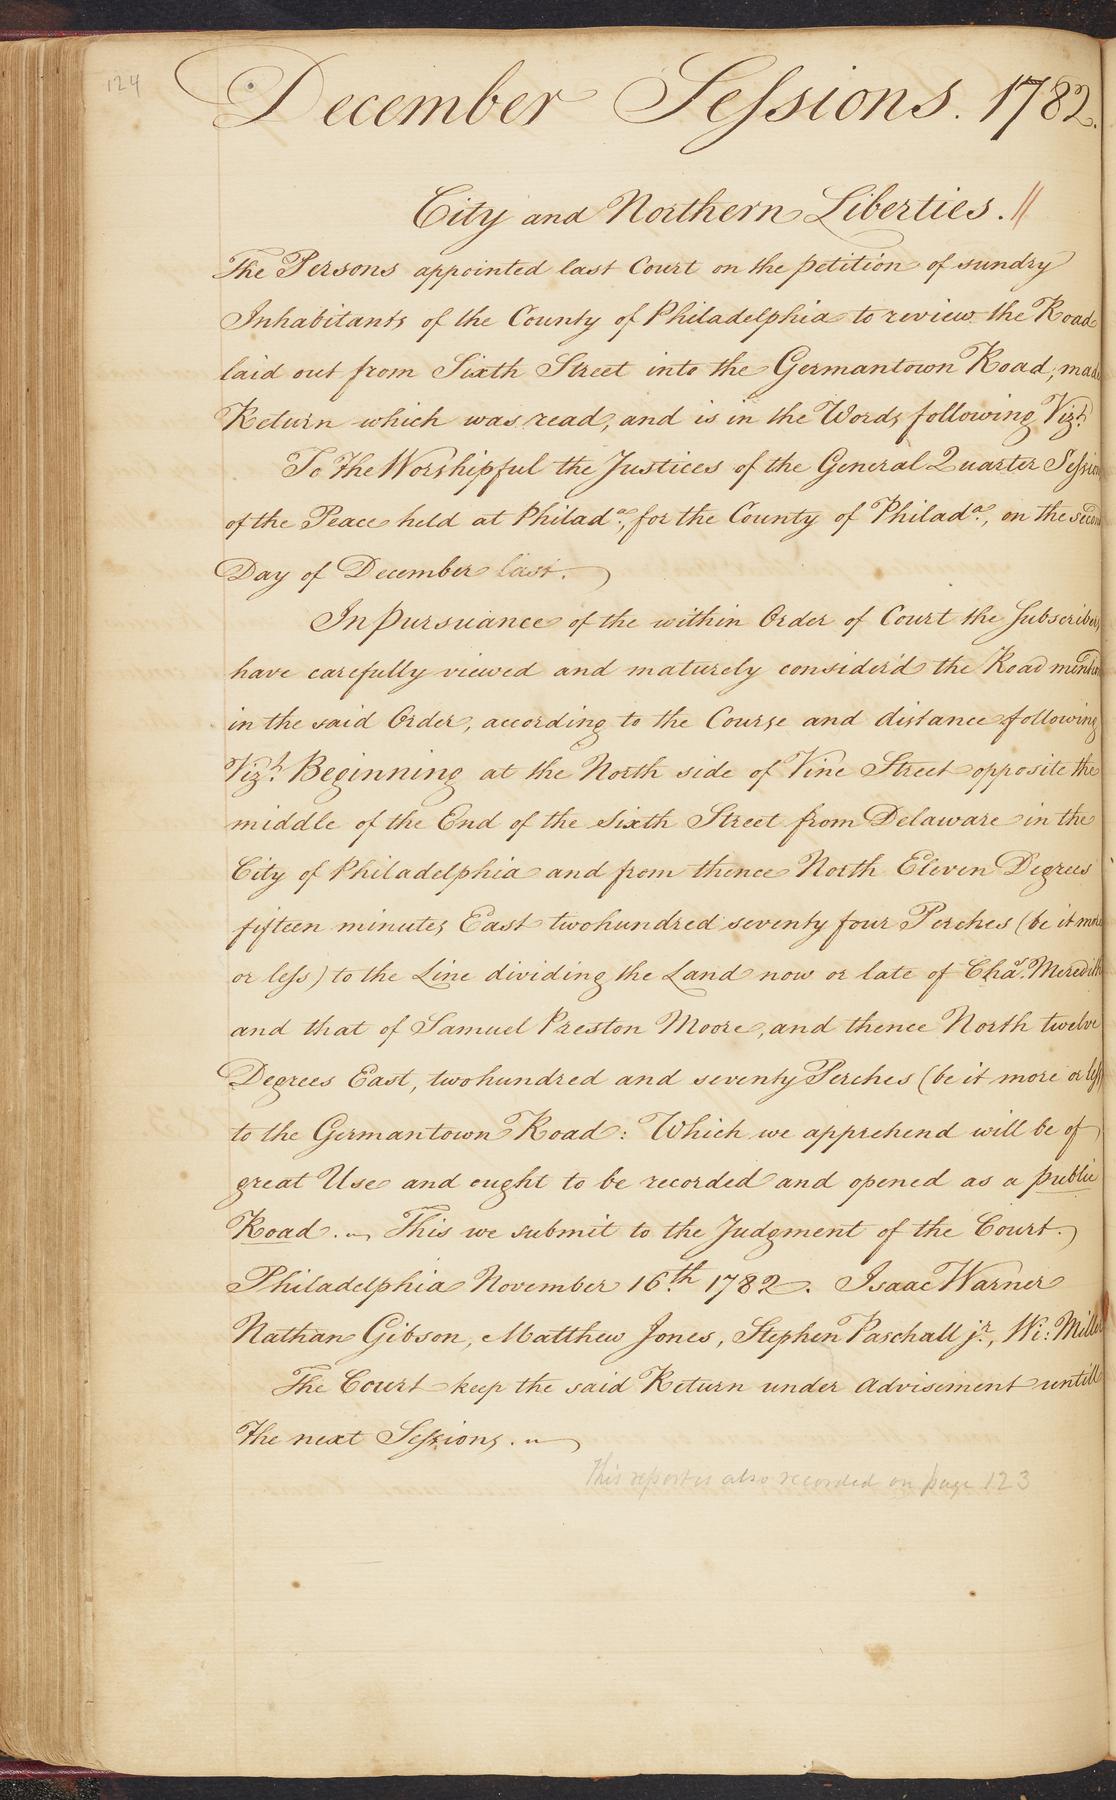 124
December Sessions. 1782.
City and Northern Liberties. //
The Persons appointed last Court on the petition of sundry
Inhabitants of the County of Philadelphia to review the Road
laid out from Sixth Street into the Germantown Road, made
Return which was read, and is in the Words following Vizt.
To the Worshipful the Justices of the General Quarter Session
of the Peace held at Philada., for the County of Philada., on the second
Day of December last.
In pursuance of the within Order of Court the Subscribers
have carefully viewed and maturely consider'd the Road
in the said Order, according to the Course and distance following
Vizt. Beginning at the North side of Vine Street opposite the
middle of the End of the Sixth Street from Delaware in the
City of Philadelphia and from thence North Eleven Degrees
fifteen minutes East twohundred seventy four Perches (be it more
or less) to the Line dividing the Land now or late of Chas. Meredith
and that of Samuel Preston Moore, and thence North twelve
Degrees East, twohundred and seventy Perches (be it more or less
to the Germantown Road: Which we apprehend will be of
great Use and ought to be recorded and opened as a public
Road. This we submit to the Judgment of the Court.
Philadelphia November 16th. 1782. Isaac Warner
Nathan Gibson, Matthew Jones, Stephen Paschall jr., Wi: Miller
The Court keep the said Return under Advisement untill
the next Sessions.
This report is also recorded on page 123